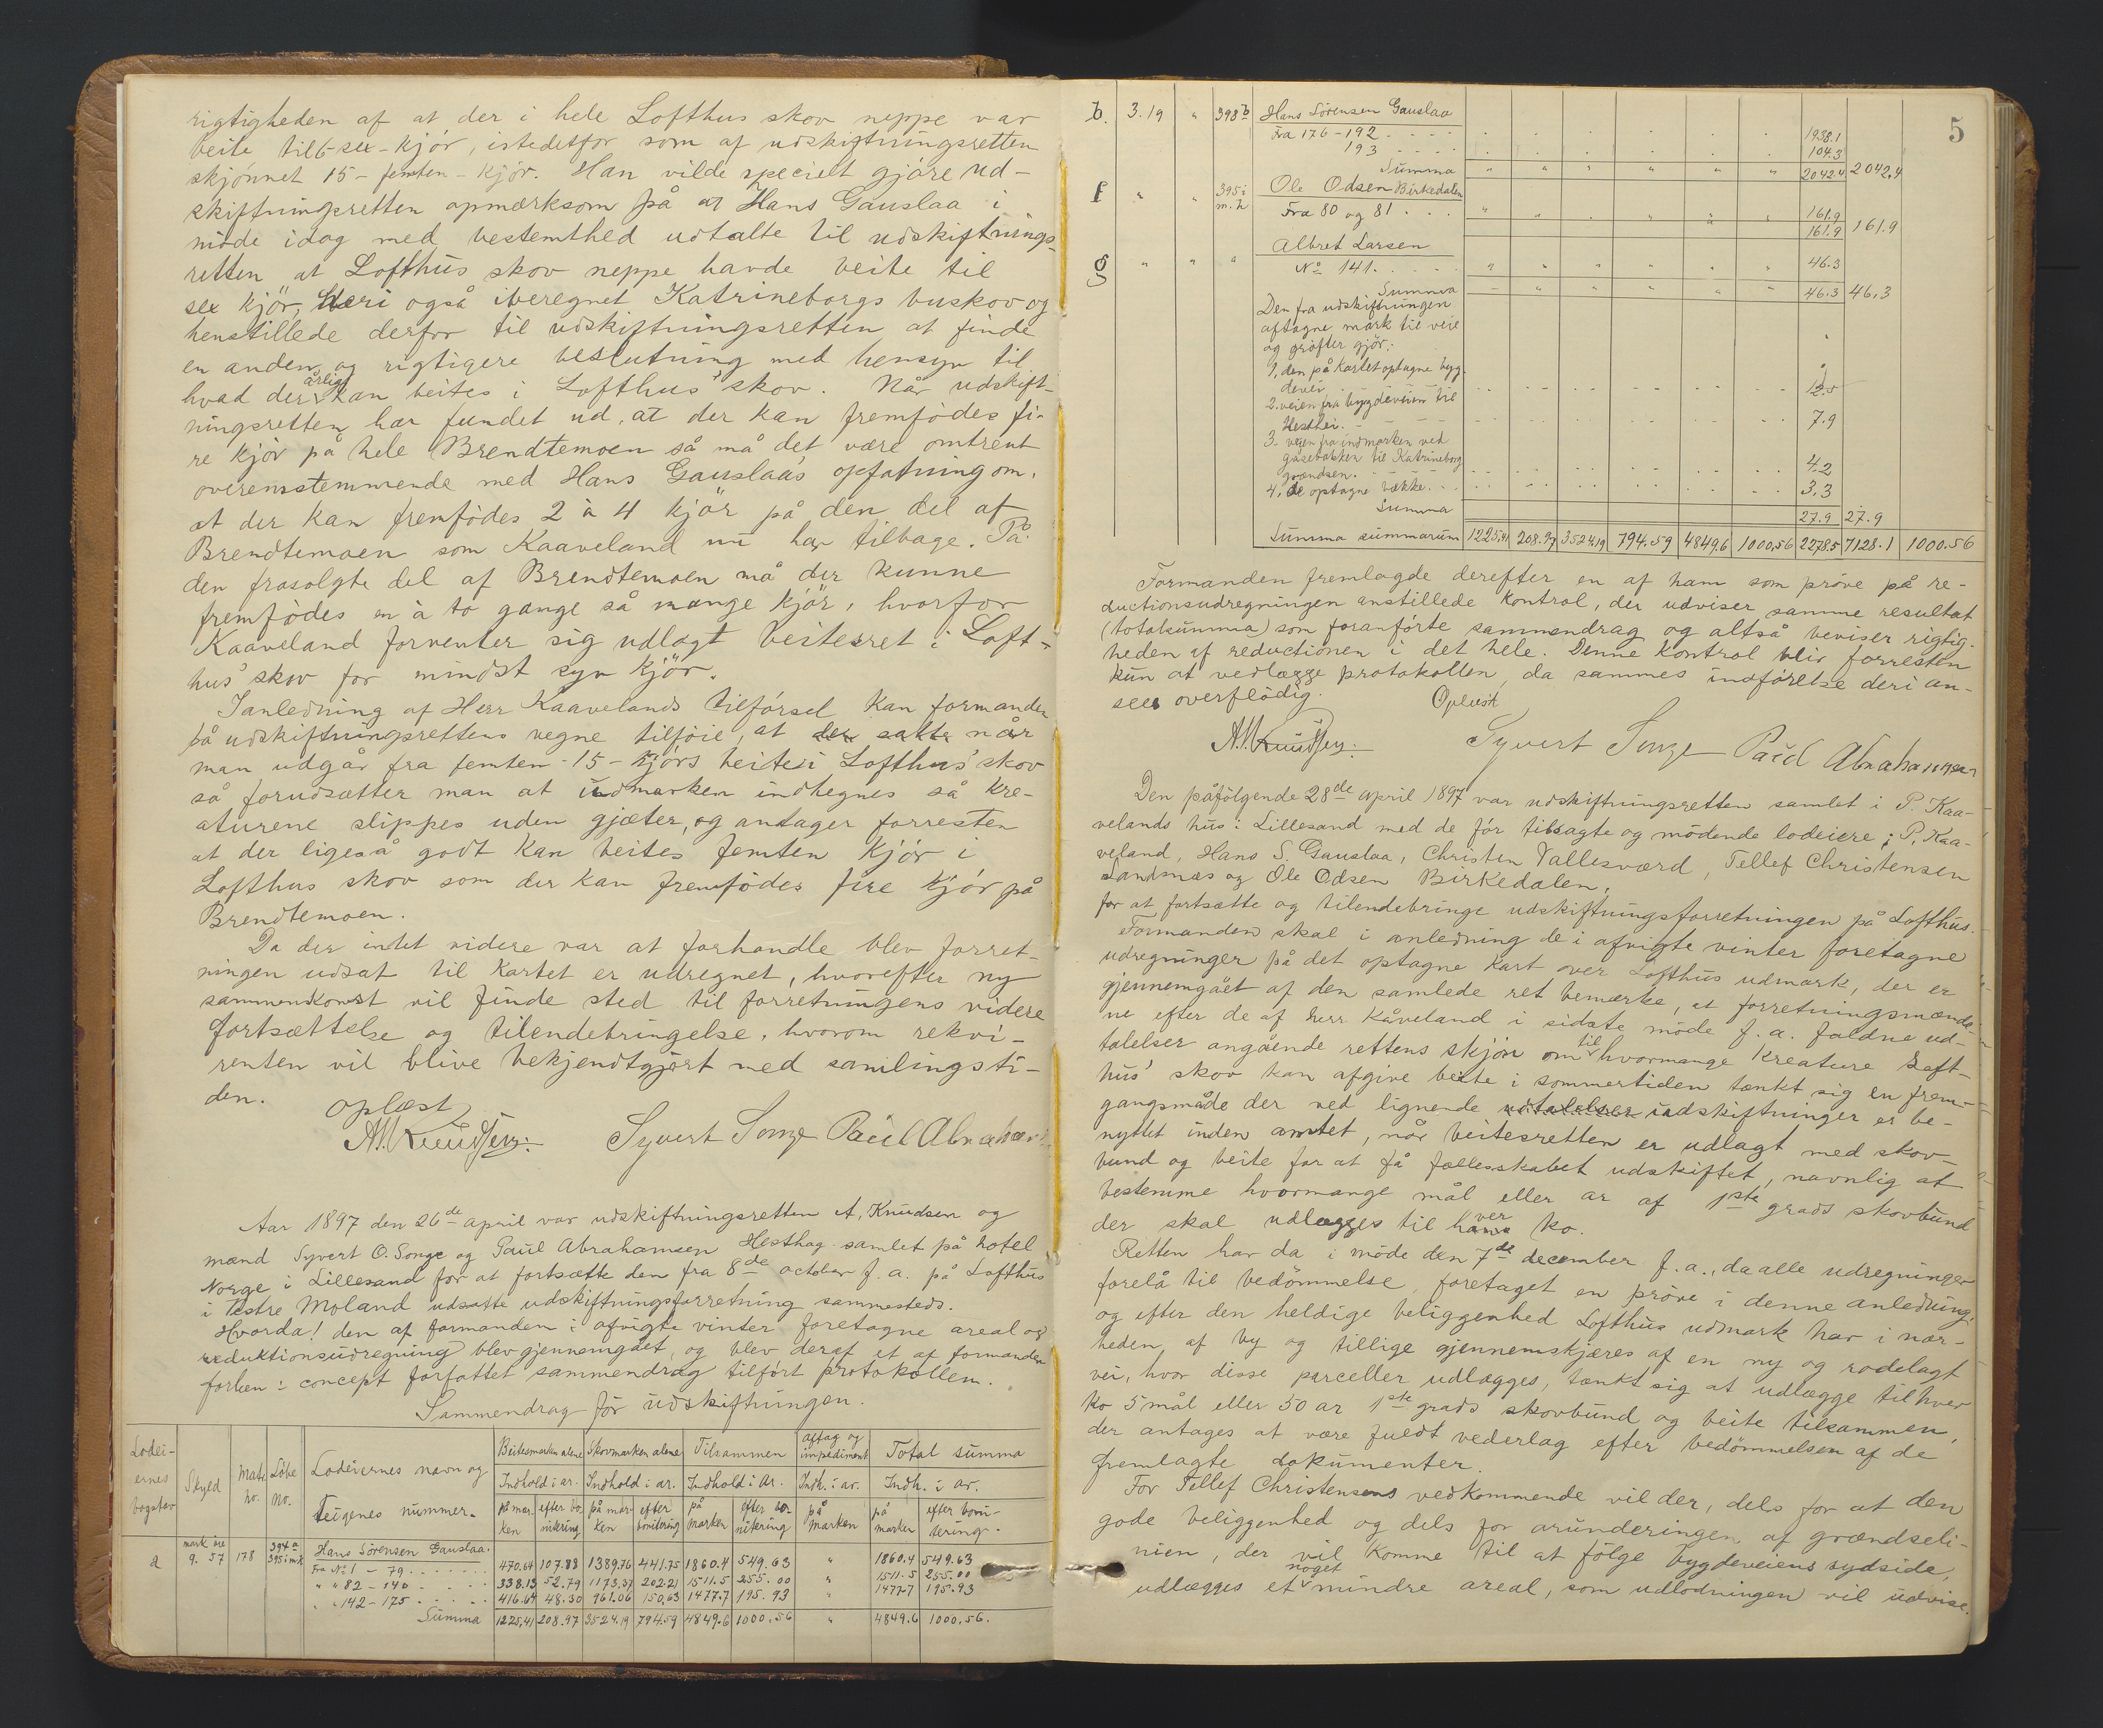 rigtigheden af at der i hele Lofthus skov neppe var
beite til 6 sex-kjör, istedetfor som af udskiftningsretten
skjönnet 15 - femten - kjör. Han vilde specielt gjöre ud-
skiftningsretten opmærksom på at Hans Gauslaa i
möde idag med bestemthed udtalte til udskiftnings-
retten at Lofthus skov neppe havde beite til
sex kjör, heri også iberegnet Katrineborgs buskov og
henstillede derfor til udskiftningsretten at finde
en anden og rigtigere beslutning med hensyn til
hvad der årlig kan beites i Lofthus' skov. Når udskift-
ningsretten har fundet ud, at der kan fremfödes fi-
re kjör på hele Brendtemoen så må det være omtrent
overensstemmende med Hans Gauslaa's opfatning om,
at der kan fremfödes 2 à 4 kjör på den del af
Brendtemoen som Kaaveland nu har tilbage. På
den frasolgte del af Brendtemoen må der kunne
fremfödes en à to gange så mange kjör, hvorfor
Kaaveland forventer sig udlagt beitesret i Loft-
hus' skov for mindst syv kjör.
Ianledning af Herr Kaavelands tilförsel kan formanden
på udskiftningsrettens vegne tilföie, at der satte når
man udgår fra femten - 15 - kjörs beite i Lofthus' skov
så forudsætter man at indmarken indhegnes så kre-
aturene slippes uden gjæter, og antager forresten
at der ligeså godt kan beites femten kjör i
Lofthus skov som der kan fremfödes fire kjör på
Brendtemoen.
Da der intet videre var at forhandle blev forret-
ningen udsat til kartet er udregnet, hvorefter ny
sammenkomst vil finde sted til forretningens videre
fortsættelse og tilendebringelse, hvorom rekvi-
renten vil blive bekjendtgjort med samlingsti-
den.
oplæst
A. Knudsen. Syvert Songe Paul Abraham
Aar 1897 den 26de april var udskiftningsretten A. Knudsen og
mænd Syvert O. Songe og Paul Abrahamsen Hesthag samlet på hotel
Norge i Lillesand for at fortsætte den fra 8de october f. a. på Lofthus
i Vestre Moland udsatte udskiftningsforretning sammesteds.
Hvorda! den af formanden i afvigte vinter foretagne areal og
reduktionsudregning blev gjennemgået, og blev deraf et af formanden
forhen i concept forfattet sammendrag tilfört protokollen.
Sammendrag för udskiftningen.
Lodei-ernes bogstav | Skyld | Matr. no. | Löbe no. | Lodeiernes navn og Teigenes nummer. | Beitesmarken alene Indhold i ar. på marken efter bonitering | Skovmarken alene Indhold i ar. på marken efter bonitering | Tilsammen Indhold i ar. på marken efter bonitering | Aftag og impediment Indh. i ar. på marken | Total summa Indh. i ar. på marken efter bonitering.
a | mark öre 9. 57 | 178 | 394 a 395 i m k | Hans Sörensen Gauslaa.
Fra No 1 - 79 . . . | 470.64 | 107.88 | 1389.76 | 441.75 | 1860.4 | 549.63 | " | 1860.4 | 549.63
" " 82 - 140 . . . | 338.13 | 52.79 | 1173.37 | 202.21 | 1511.5 | 255.00 | " | 1511.5 | 255.00
" " 142 - 175 . . . | 416.64 | 48.30 | 961.06 | 150,63 | 1477.7 | 195.93 | " | 1477.7 | 195.93
Summa | 1225,41 | 208.97 | 3524.19 | 794.59 | 4849.6 | 1000.56 | " | 4849.6 | 1000.56.
5
b. | 3.19 | " | 398 b | Hans Sörensen Gauslaa
Fra 176 - 192 . . . . 1938.1
193 . . . . 104.3
Summa " " " " " " 2042.4 2042,4
f " " 395 i m. h Ole Odsen Birkedalen
Fra 80 og 81 . . . 161.9
161.9 161.9
g " " " Albret Larsen
No 141. . . . . 46.3
Summa 46.3 46,3
Den fra udskiftningen
aftagne mark til veie
og gröfter gjör:
1, den på kartet optagne byg-
devei, . . . 12.5
2. veien fra bygdeveien til
Hesthei. . . . 7.9
3. veien fra indmarken ved
gåsebakken til Katrineborg
grændsen. . . . 4.2
4. de optagne bække. . . 3.3
Summa 27.9 27.9
Summa summarum 1225,41 208.97 3524.19 794.59 4849.6 1000,56 2278.5 7128.1 1000.56
Formanden fremlagde derefter en af ham som pröve på re-
ductionsudregningen anstillede kontrol, der udviser samme resultat
(totalsumma) som foranförte sammendrag og altså beviser rigtig-
heden af reductionen i det hele. Denne kontrol blir forresten
kun at vedlægge protokollen, da sammes indförelse deri an-
sees overflödig.
Oplæst
A. Knudsen. Syvert Songe Paul Abrahamsen
Den påfölgende 28de april 1897 var udskiftningsretten samlet i P. Kaa-
velands hus i Lillesand med de för tilsagte og mödende lodeiere; P. Kaa-
veland, Hans S. Gauslaa, Christen Vallesværd, Tellef Christensen
Sandsnæs og Ole Odsen Birkedalen,
for at fortsætte og tilendebringe udskiftningsforretningen på Lofthus.
Formanden skal i anledning de i afvigte vinter foretagne
udregninger på det optagne kart over Lofthus udmark, der er
gjennemgået af den samlede ret bemærke, at forretningsmænde-
ne efter de af herr Kåveland i sidste möde f. a. faldne ud-
talelser angående rettens skjön om til hvormange kreature Loft-
hus' skov kan afgive beite i sommertiden tænkt sig en frem-
gangsmåde der ved lignende udtalelser udskiftninger er be-
nyttet inden amtet, når beitesretten er udlagt med skov-
bund og beite for at få fællesskabet udskiftet, navnlig at
bestemme hvormange mål eller ar af 1ste grads skovbund
der skal udlægges til hver ko.
Retten har da i möde den 7de december f. a., da alle udregninger
forelå til bedömmelse foretaget en pröve i denne anledning,
og efter den heldige beliggenhed Lofthus udmark har i nær-
heden af by og tillige gjennemskjæres af en ny og rodelagt
vei, hvor disse parceller udlægges, tænkt sig at udlægge til hver
ko 5 mål eller 50 ar 1ste grads skovbund og beite tilsammen,
der antages at være fuldt vederlag efter bedömmelsen af de
fremlagte dokumenter.
For Tellef Christensens vedkommende vil der, dels for at den
gode beliggenhed og dels for arunderingen af grændseli-
nien, der vil komme til at fölge bygdeveiens sydside,
udlægges et noget mindre areal, som udlodningen vil udvise.